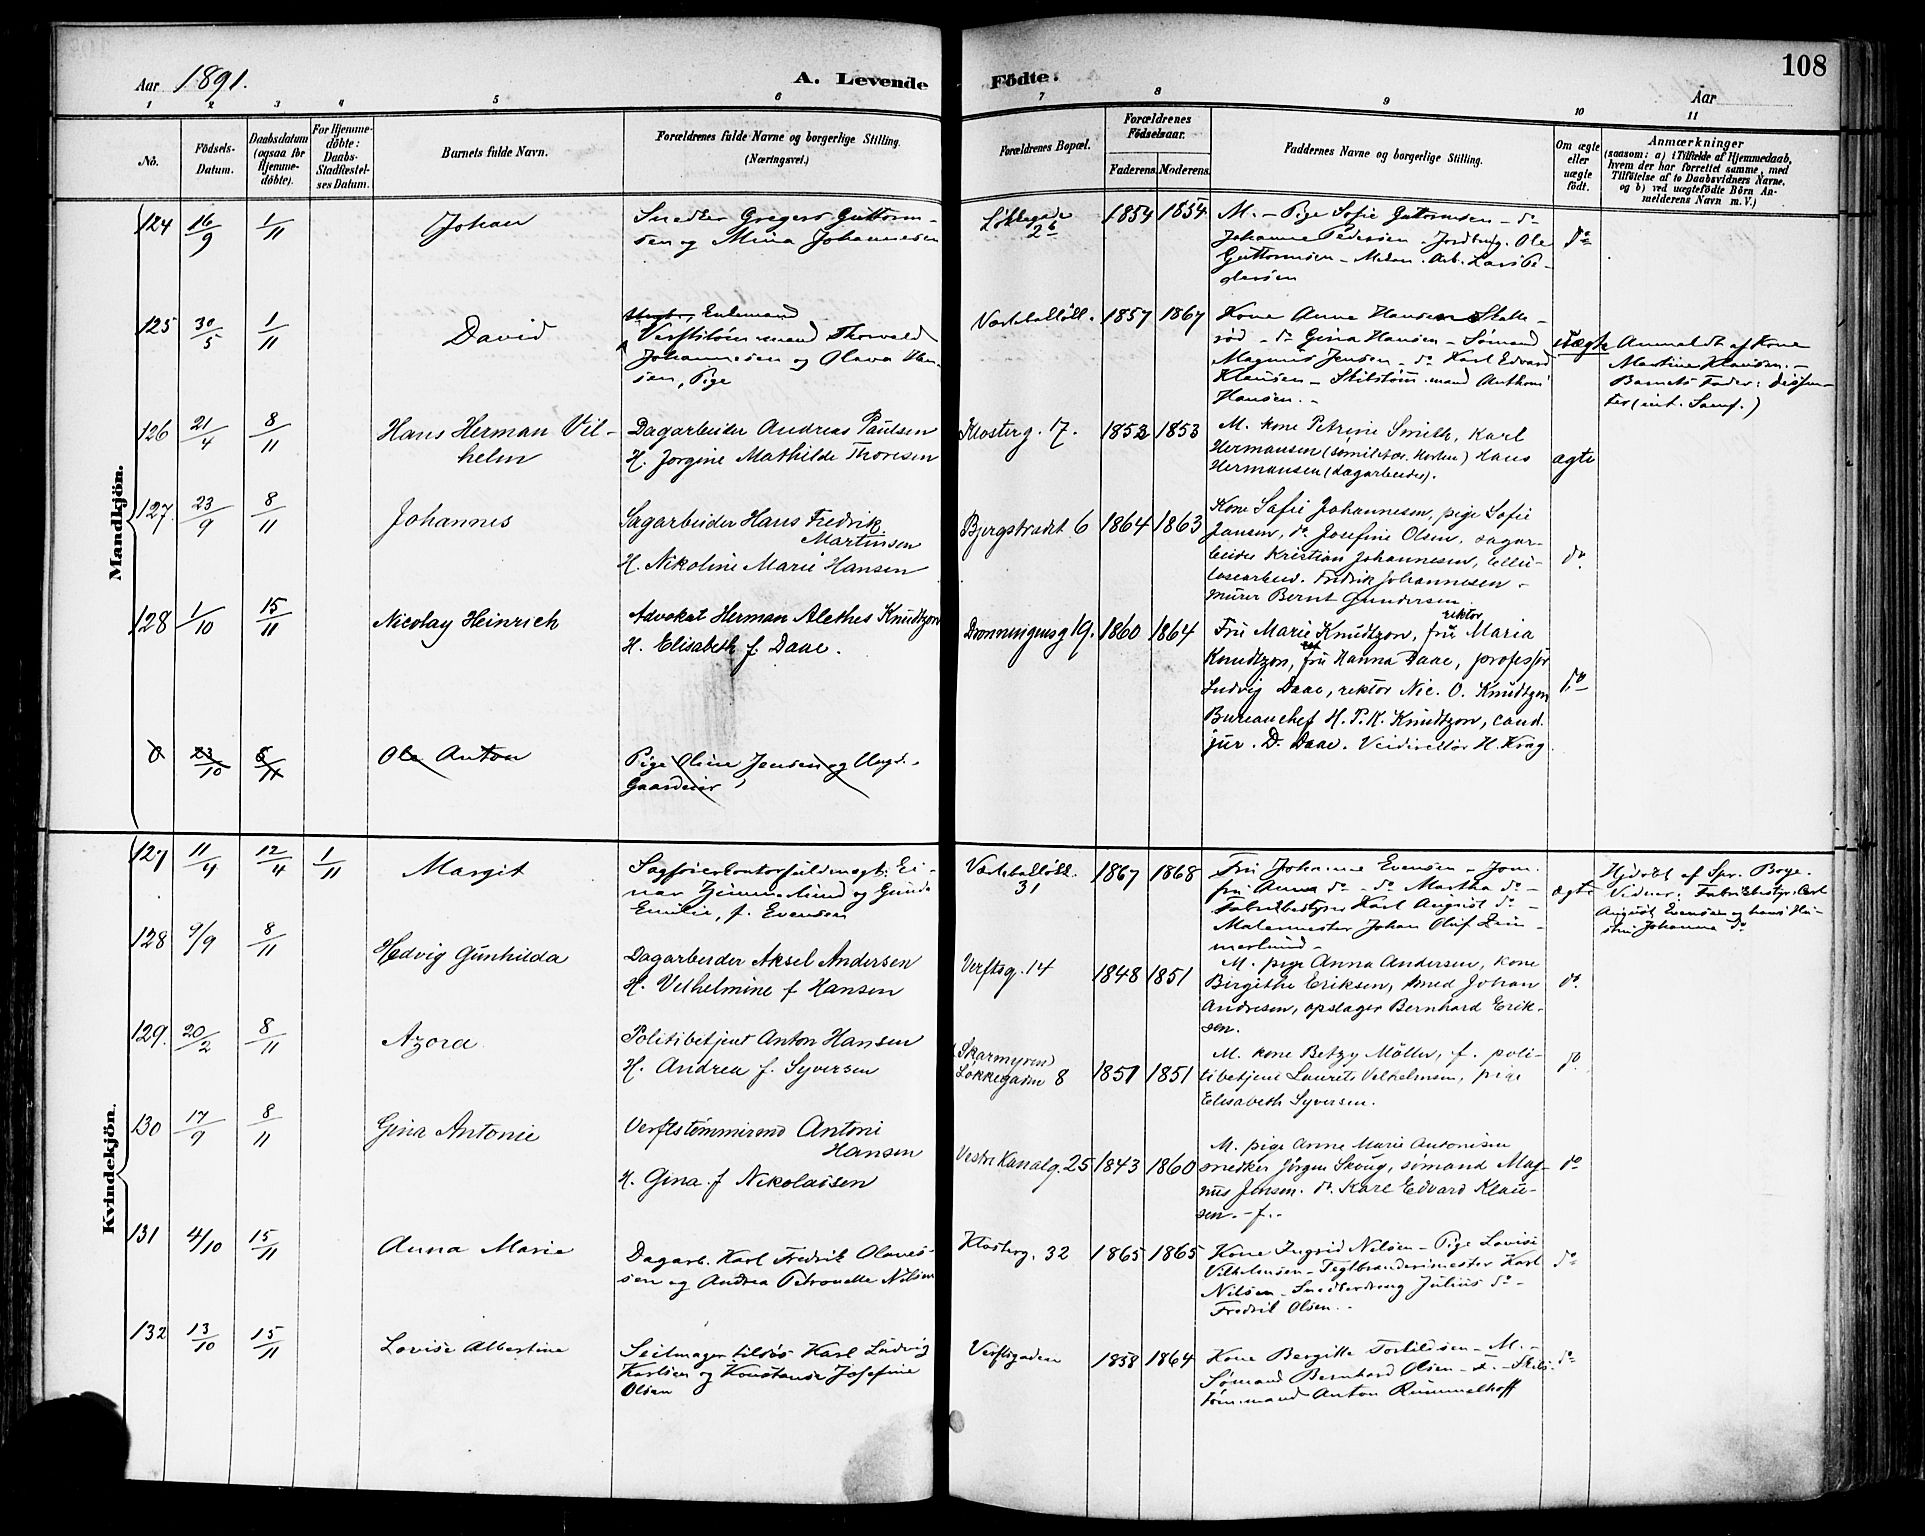 Aar 1891.
A. Levende
Födte.
108
Aar
1 2 3 4 5 6 7 8 9 10 11
No.
Födsels-
Datum.
Daabsdatum
(ogsaa for
Hjemme-
döbte).
For Hjemme-
döbte:
Daabs-
Stadfestel-
ses Datum.
Barnets fulde Navn.
Forældrenes fulde Navne og borgerlige Stilling.
(Næringsvei.)
Forældrenes Bopæl.
Forældrenes
Födselsaar.
Faderens.
Moderens.
Faddernes Navne og borgerlige Stilling.
Om ægte
eller
uægte
födt.
Anmærkninger
(saasom: a) i Tilfælde af Hjemmedaab,
hvem der har forrettet samme, med
Tilföielse af to Daabsvidners Navne.
og b) ved uægtefödte Börn An-
melderens Navn m. V.)
Mandkjön.
124 16/9 1/11 Johan
Snedker Gregers Guttorm-
sen og Mina Johannesen
Løkkegade
2b
1854 1854
M. - Pige Sofie Guttormsen - do
Johanne Pedersen. Jordbrug. Ole
Guttormsen - Medan. Arb. Lars Pe-
dersen
do
125 30/5 1/11 David
Ungk., Enkemand
Verftstømmermand Thorvald
Johannesen og Olava Han-
sen, Pige
1857 1867
Kone Anne Hansen Skalle-
rød - do Gina Hansen - Sømand
Magnus Jensen - do Karl Edvard
Klausen - Skibstømmand Anthoni
Hansen. -
Uægte
Anmeldt af Kone
Martine Klausen. -
Barnets Fader: dissen-
ter
126 21/4 8/11 Hans Herman Vil-
helm
Dagarbeider Andreas Paulsen
H. Jorgine Mathilde Thoresen
Klosterg. 17.
1852 1853
M. kone Petrine Smith, Karl
Hermansen Hans
Hermansen (dagarbeider).
ægte
127. 23/9 8/11 Johannes
Sagarbeider Hans Fredrik
Martinsen
H. Nikoline Marie Hansen
Bjergstrædt 6
1864 1863
Kone Sofie Johannesen, pige Sofie
Jansen, do Josefine Olsen, sagar-
beider Kristian Johannesen, cellu-
losearbeid. Fredrik Johannesen -
murer Bernt Gundersen.
do.
128 1/10 15/11 Nicolay Heinrich
Advokat Herman Alethes Knudtzon
H. Elisabeth f. Daae.
Dronningensg 19.
1860 1864
rektor
Frü Marie Knüdtzon, frü Maria
Knudtzon, frü Hanna Daae, professor
Ludvig Daae, rektor Nic. O. Knüdtzon
Bureauchef H. P. K. Knüdtzon, cand.
jur. D. Daae. Veidirektör H. Krag
do
0 23/10 8/11 Ole Anton
Pige Oline Jensen og Ungk.
Gaardeier
Kvindekjön.
127 11/4 12/4 1/11 Margit
Sagførerkontorfuldmægt. Ei-
nar Zimmerlund og Gunda
Emilie, f. Evensen
31
1867 1868
Fru Johanne Evensen - Jom-
fru Anna do - do Martha do -
Fabrikbestyrer Karl August do -
Malermester Johan Oluf Zim-
merlund -
ægte
Hjdøbt af Spr. Boye.
Vidner: Fabrikbestyr. Carl
August Evensen og hans Hu-
stru Johanna do
128 9/9 8/11 Hedvig Günhilda
Dagarbeider Aksel Andersen
H. Vilhelmine f Hansen
Verftsg. 14
1848 1851
M. pige Anna Andersen, kone
Birgithe Eriksen, smed Johan
Andresen, opslager Bernhard Erik-
sen.
do.
129. 20/2 8/11 Azora
Politibetjent Anton Hansen
H. Andrea f. Syversen
Skarmyren
Løkkegaden 8
1851 1851
M. kone Betzy Möller, f. poli-
tibetjent Laurits Vilhelmsen, pige
Elisabeth Syversen.
do.
130 17/9 8/11 Gina Antonie
Verftstömmermd Antoni
Hansen
H. Gina f Nikolaisen
Vestre Kanalg. 25
1843 1860
M. pige Anne Marie Antonisen
snedker Jörgen Skoug, sømand Mag-
nus Jensen. do. Karl Edvard Klau-
sen. - f. -
do
131 4/10 15/11 Anna Marie
Dagarb. Karl Fredrik Olaves-
sen og Andrea Petronelle Nilsen
Klosterg. 32
1865 1865
Kone Ingrid Nilsen - Pige Lovise
Vilhelmsen - Teglbrænderimester Karl
Nilsen - Snedkerdreng Julius do -
Fredrik Olsen. -
do
132 13/10 15/11 Lovise Albertine
Seilmager Karl Ludvig
Karlsen og Konstanse Josefine
Olsen
Verftsgaden
1858 1864
Kone Bergitte Torkildsen - M. -
Sømand Bernhard Olsen - f. - Skibs-
tømmermand Anton Rummelhoff
do